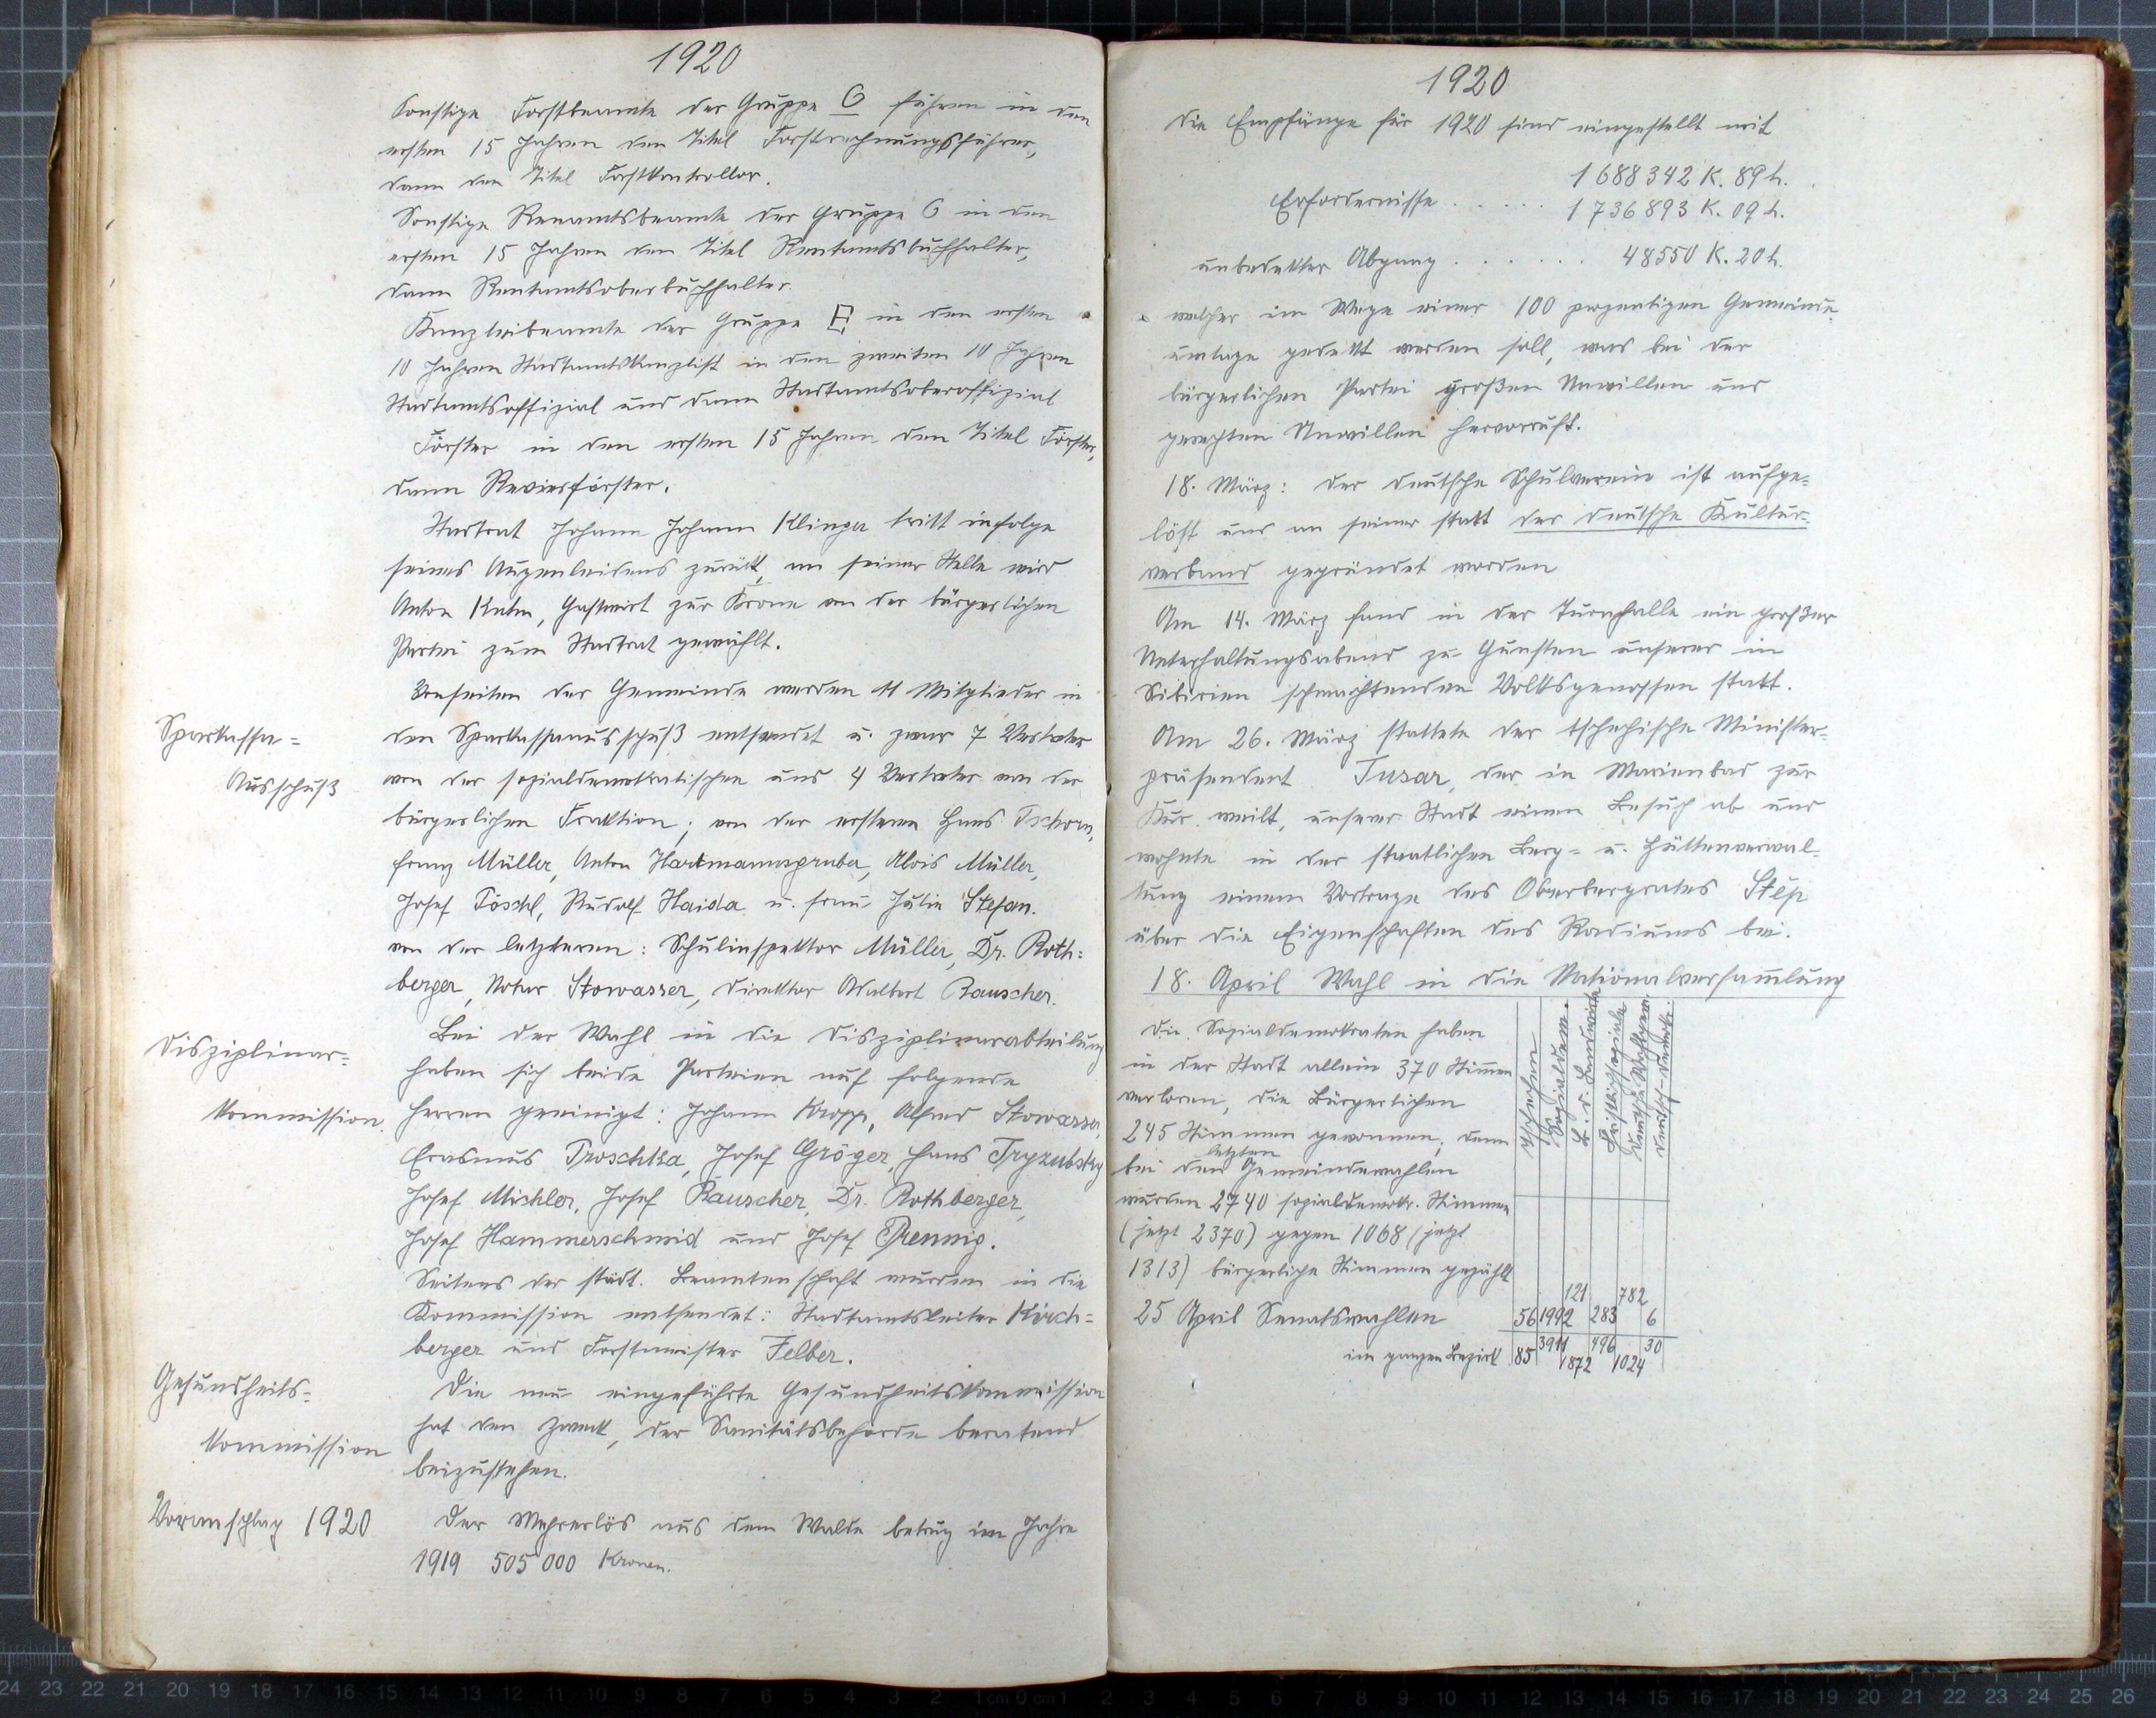 1920
Sonstige Forstbeamte der Gruppe C führen in den
ersten 15 Jahren den Titel Forstrechnungsführer,
dann den Titel Forstkontrollor.
Sonstige Renamtsbeamte der Gruppe C in den
ersten 15 Jahren den Titel Rentamtsbuchhalter,
dann Rentamtsoberbuchhalter.
Kanzleibeamte der Gruppe E in den ersten
10 Jahren Stadtamtskanzlist in den zweiten 10 Jahren
Stadtamtsoffizial und dann Stadtamtsoberoffizial
Förster in den ersten 15 Jahren den Titel Förster,
dann Revierförster.
Stadtrat Johann Johann Klinger tritt infolge
seines Augenleidens zurück, an seiner Stelle wird
Anton Kuhn, Gastwirt zur Krone von der bürgerlichen
Partei zum Stadtrat gewählt.
Sparkassa=
Ausschuß
Vonseiten der Gemeinde werden 11 Mitglieder in
den Sparkassaausschuß entsendet u. zwar 7 Vertreter
von der sozialdemokratischen und 4 Vertreter von der
bürgerlichen Fraktion; von der ersteren Hans Tschorn,
Franz Müller, Anton Hartmannsgruber, Alois Müller,
Josef Pöschl, Rudolf Haida u. Frau Julie Stefan.
von der letzteren: Schulinspektor Müller, Dr. Roth=
berger, Notar Stowasser, Direktor Adalbert Rauscher.
Disziplinar=
Kommission.
Bei der Wahl in die Disziplinarabteilung
haben sich beide Parteien auf folgende
Herren geeinigt: Johann Kropp, Alfred Stowasser,
Erasmus Proschka, Josef Gröger, Hans Tryzubsky
Josef Michler, Josef Rauscher, Dr. Rothberger,
Josef Hammerschmid und Josef Prennig.
Seitens der städt. Beamtenschaft wurden in die
Kommission entsendet: Stadtamtsleiter Kirch=
berger und Forstmeister Felber.
Gesundheits=
Kommission
Die neu eingeführte Gesundheitskommission
hat den Zweck, der Sanitätsbehörde beratend
beizustehen.
Voranschlag 1920
Der Mehrerlös aus dem Walde betrug im Jahre
1919 505 000 Kronen.
1920
Die Empfänge für 1920 sind eingestellt mit
1 688 342 K. 89 h.
Erfordernisse . . . . . 1 736 893 K. 09 h.
unbedekter Abgang . . . . . . 48550 K. 20 h.
welcher im Wege einer 100 prozentigen Gemeinde
umlage gedekt werden soll, was bei der
bürgerlichen Partei großen Unwillen und
gerechten Unwillen hervorruft.
18. März: Der deutsche Schulverein ist aufge=
löst und an seiner statt der deutsche Kultur=
verband gegründet worden
Am 14. März fand in der Turnhalle ein großer
Unterhaltungsabend zu Gunsten unserer in
Sibirien schmachtenden Volksgenossen statt.
Am 26. März stattete der tschechische Minister=
präsendent Tusar, der in Marienbad zur
Kur weilt, unserer Stadt einen Besuch ab und
wohnte in der staatlichen Berg= u. Hüttenverwal=
tung einem Vortrage des Oberbergrates Štěp
über die Eigenschaften des Radiums bei.
18. April Wahl in die Nationalversammlung
Die Sozialdemokraten haben
in der Stadt allein 370 Stimen
verloren, die Bürgerlichen
245 Stimmen gewonnen, denn
bei den letzten Gemeindewahlen
wurden 2740 sozialdemokr. Stimmen
(jetzt 2370) gegen 1068 (jetzt
1313) bürgerliche Stimmen gezählt
Tschechen
Sozialdem.
B. d. Landwirte
Christlichsoziale
Deutsche Wahlgem.
Deutsch-Demokr.
25 April Senatswahlen 56 1992 121 283 782 6
im ganzen Bezirk 85 3911 1872 496 1024 30